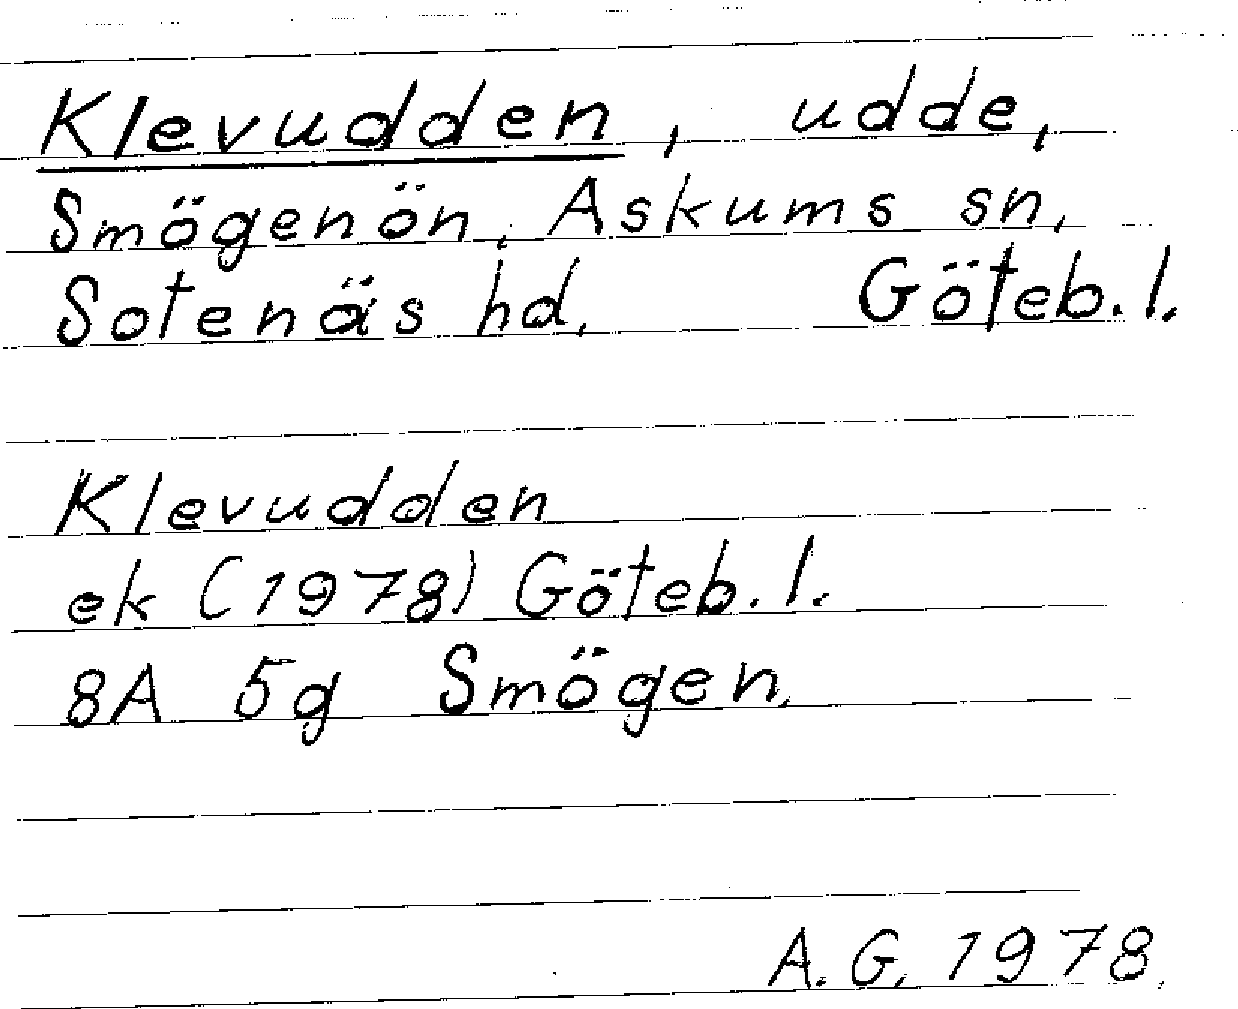 Klevudden, udde,
Smögenön, Askums sn,
Sotenäs hd, Göteb. l.
Klevudden
ek (1978) Göteb. l.
8A 5g Smögen,
A. G. 1978.